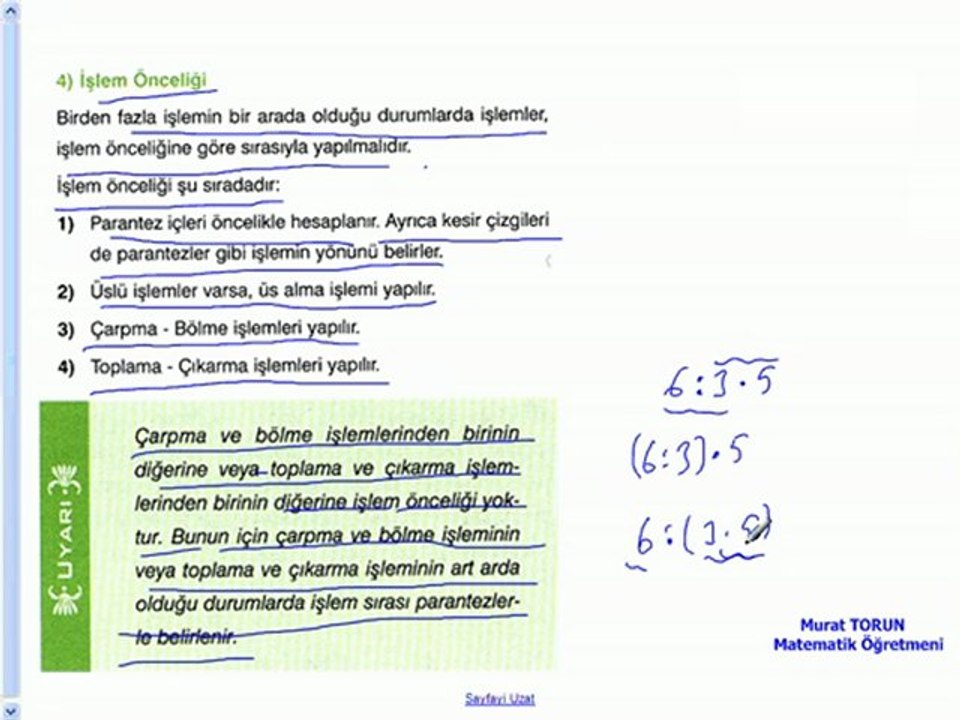 4) İşlem Önceliği
Birden fazla işlemin bir arada olduğu durumlarda işlemler,
işlem önceliğine göre sırasıyla yapılmalıdır.
İşlem önceliği şu sıradadır:
1) Parantez içleri öncelikle hesaplanır. Ayrıca kesir çizgileri
de parantezler gibi işlemin yönünü belirler.
2) Üslü işlemler varsa, üs alma işlemi yapılır.
3) Çarpma - Bölme işlemleri yapılır.
4) Toplama - Çıkarma işlemleri yapılır.
UYARI
Çarpma ve bölme işlemlerinden birinin
diğerine veya toplama ve çıkarma işlem-
lerinden birinin diğerine işlem önceliği yok-
tur. Bunun için çarpma ve bölme işleminin
veya toplama ve çıkarma işleminin art arda
olduğu durumlarda işlem sırası parantezler-
le belirlenir.
6:3.5
(6:3).5
6:(3.5)
Murat TORUN
Matematik Öğretmeni
Sayfayi Uzat